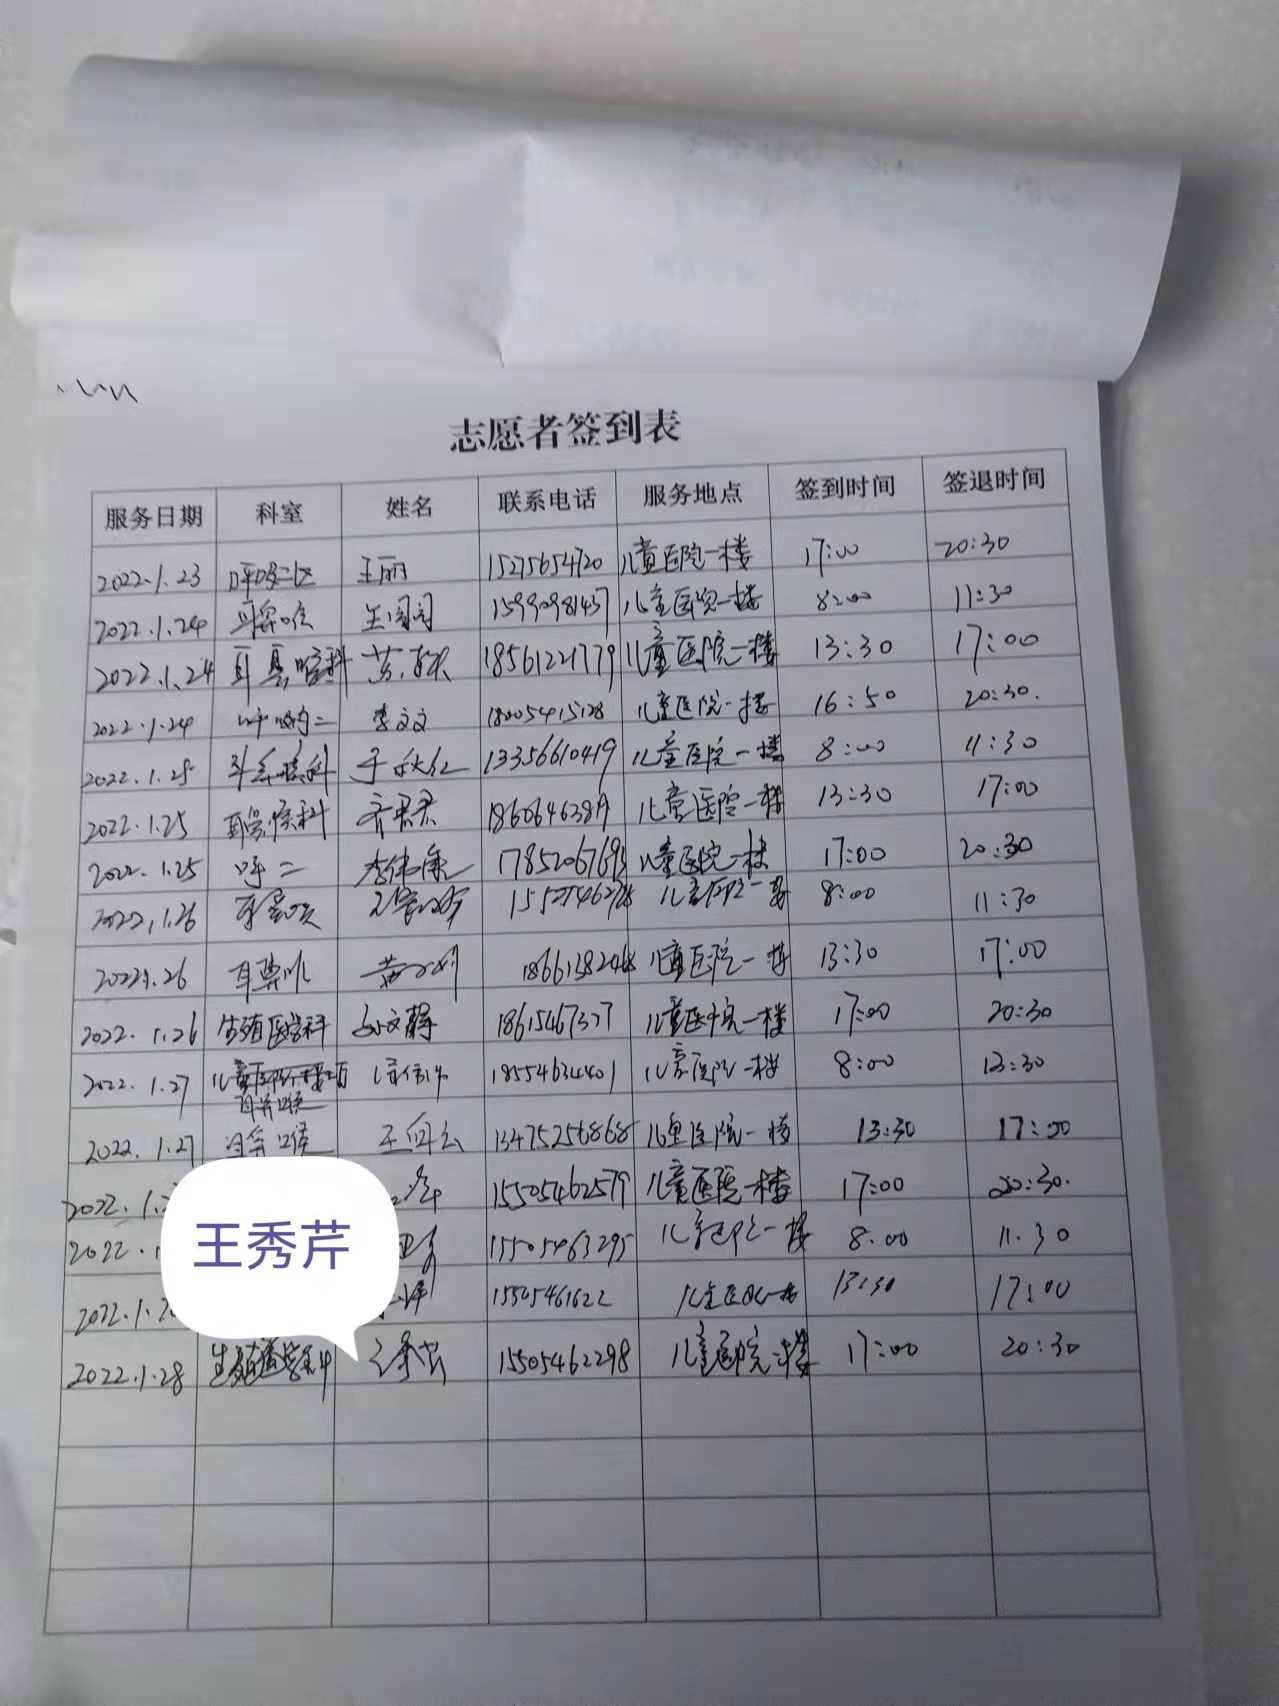 志愿者签到表
服务日期 科室 姓名 联系电话 服务地点 签到时间 签退时间
2022.1.23 呼吸二区 王丽 15275654720 儿童医院一楼 17:00 20:30
2022.1.24 耳鼻喉 15990981437 儿童医院一楼 8:00 11:30
2022.1.24 耳鼻喉科 18561221779 儿童医院一楼 13:30 17:00
2022.1.24 呼吸内二 李文文 18005415128 儿童医院一楼 16:50 20:30.
2022.1.25 耳鼻喉科 于秋红 13356610419 儿童医院一楼 8:00 11:30
2022.1.25 耳鼻喉科 齐君君 儿童医院一楼 13:30 17:00
2022.1.25 呼二 李伟康 儿童医院一楼 17:00 20:30
2022.1.26 耳鼻喉 儿童医院一楼 8:00 11:30
2022.1.26 耳鼻喉 儿童医院一楼 13:30 17:00
2022.1.26 生殖医学科 18615467377 儿童医院一楼 17:00 20:30
2022.1.27 耳鼻喉 18554634401 儿童医院一楼 8:00 13:30
2022.1.27 耳鼻喉 13475256868 儿童医院一楼 13:30 17:00
2022.1. 15505462579 儿童医院一楼 17:00 20:30.
2022. 15505463295 儿童医院一楼 8:00 11:30
2022.1. 15505461622 儿童医院一楼 13:30 17:00
2022.1.28 生殖医学科 15505462298 儿童医院一楼 17:00 20:30
王秀芹